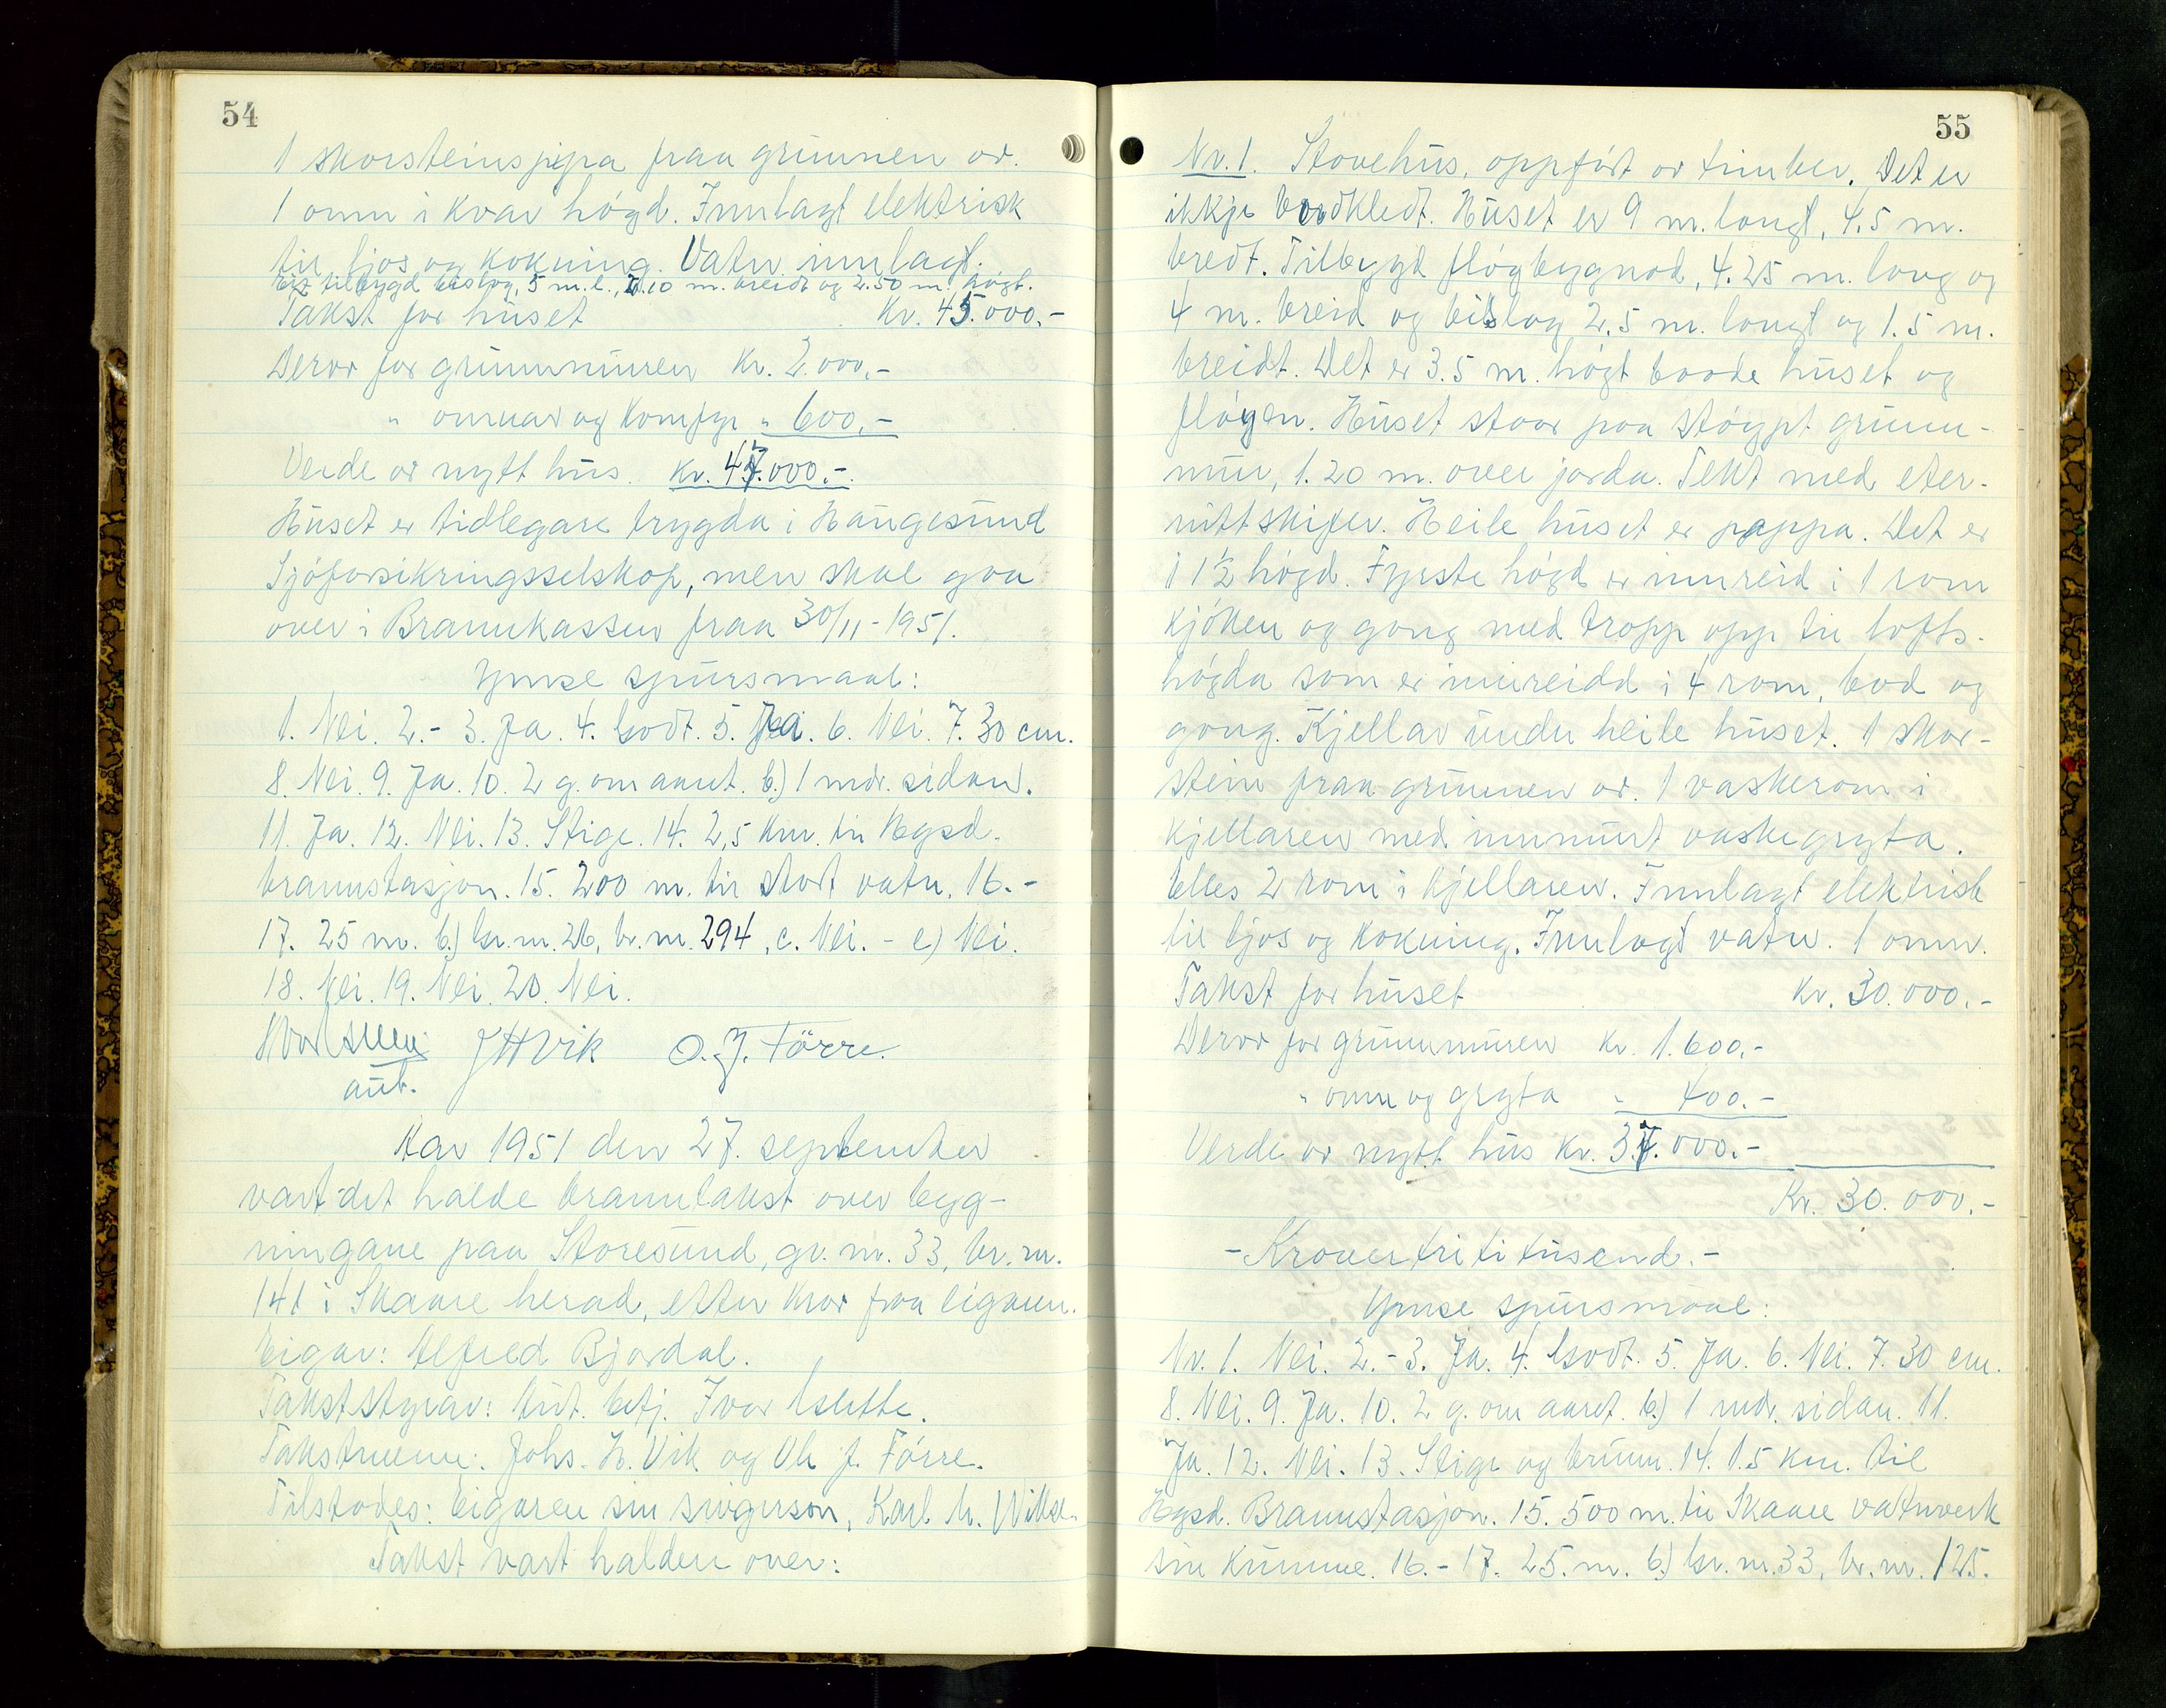 54
1 skorsteinspipa fraa grunnen av.
1 omn i kvar högd. Innlagt elektrisk
til ljos og kokning. Vatn innlagt.
tilbygd bislag, 5 m. l., 2.10 m. breidt og 2.50 m. högt.
Takst for huset Kr. 45.000.-
Derav for grunnmuren Kr. 2.000,-
" omnar og komfyr " 600,-
Verde av nytt hus. Kr. 47.000.-
Huset er tidlegare trygda i Haugesund
Sjöforsikringsselskap, men skal gaa
over i Brannkassen fraa 30/11-1951.
Ymse spursmaal:
1. Nei. 2.- 3. Ja. 4. Godt. 5. Ja. 6. Nei. 7. 30 cm.
8. Nei. 9. Ja. 10. 2 g. om aaret. b.) 1 mdr. sidan.
11. Ja. 12. Nei. 13. Stige. 14. 2,5 km. til Hgsd.
brannstasjon. 15. 200 m. til stort vatn. 16.-
17. 25 m. b.) Gr. nr. 26, br. nr. 294, c. Nei. - e) Nei.
18. Nei. 19. Nei. 20. Nei.
J H Vik O. J. Förre.
Aar 1951 den 27. september
vart det halde branntakst over byg-
ningane paa Storesund, gr. nr. 33, br. nr.
141 i Skaare herad, etter krav fraa eigaren.
Eigar: Alfred Bjordal.
Takststyrar: aut. betj. Ivar Slette.
Takstmenn: Johs. H. Vik og Ole J. Förre.
Tilstades: Eigaren sin svigerson, Karl M.
Takst vart halden over:
55
Nr. 1. Stovehus, oppfört av timber. Det er
ikkje bordkledt. Huset er 9 m. langt, 4.5 m.
bredt. Tilbygd flöybygnad, 4.25 m. lang og
4 m. breid og bislag 2,5 m. langt og 1.5 m.
breidt. Det er 3.5 m. högt baade huset og
flöyen. Huset staar paa stöypt grunn-
mur, 1.20 m. over jorda. Tekt med eter-
nittskifer. Heile huset er pappa. Det er
i 1½ högd. Fyrste högd er innreid i 1 rom
kjöken og gong med tropp opp til lofts-
högda som er innreidd i 4 rom, bod og
gong. Kjellar under heile huset. 1 skor-
stein fraa grunnen av. 1 vaskerom i
kjellaren med innmurt vaskegryta.
Elles 2 rom i kjellaren. Innlagt elektrisk
til ljos og kokning. Innlagt vatn. 1 omn.
Takst for huset Kr. 30.000.-
Derav for grunnmuren Kr. 1.600,-
" omn og gryta " 400.-
Verde av nytt hus Kr. 37.000.-
Kr. 30.000.-
- Kroner trititusend. -
Ymse spursmaal:
Nr. 1. Nei. 2.- 3. Ja. 4. Godt. 5. Ja. 6. Nei. 7. 30 cm.
8. Nei. 9. Ja. 10. 2 g. om aaret. b.) 1 mdr. sidan. 11.
Ja. 12. Nei. 13. Stige og brunn. 14. 1.5 km. til
Hgsd. Brannstasjon. 15. 500 m. til Skaare vatnverk
sin kumme. 16.- 17. 25. m. b.) Gr. nr. 33, br. nr. 125.